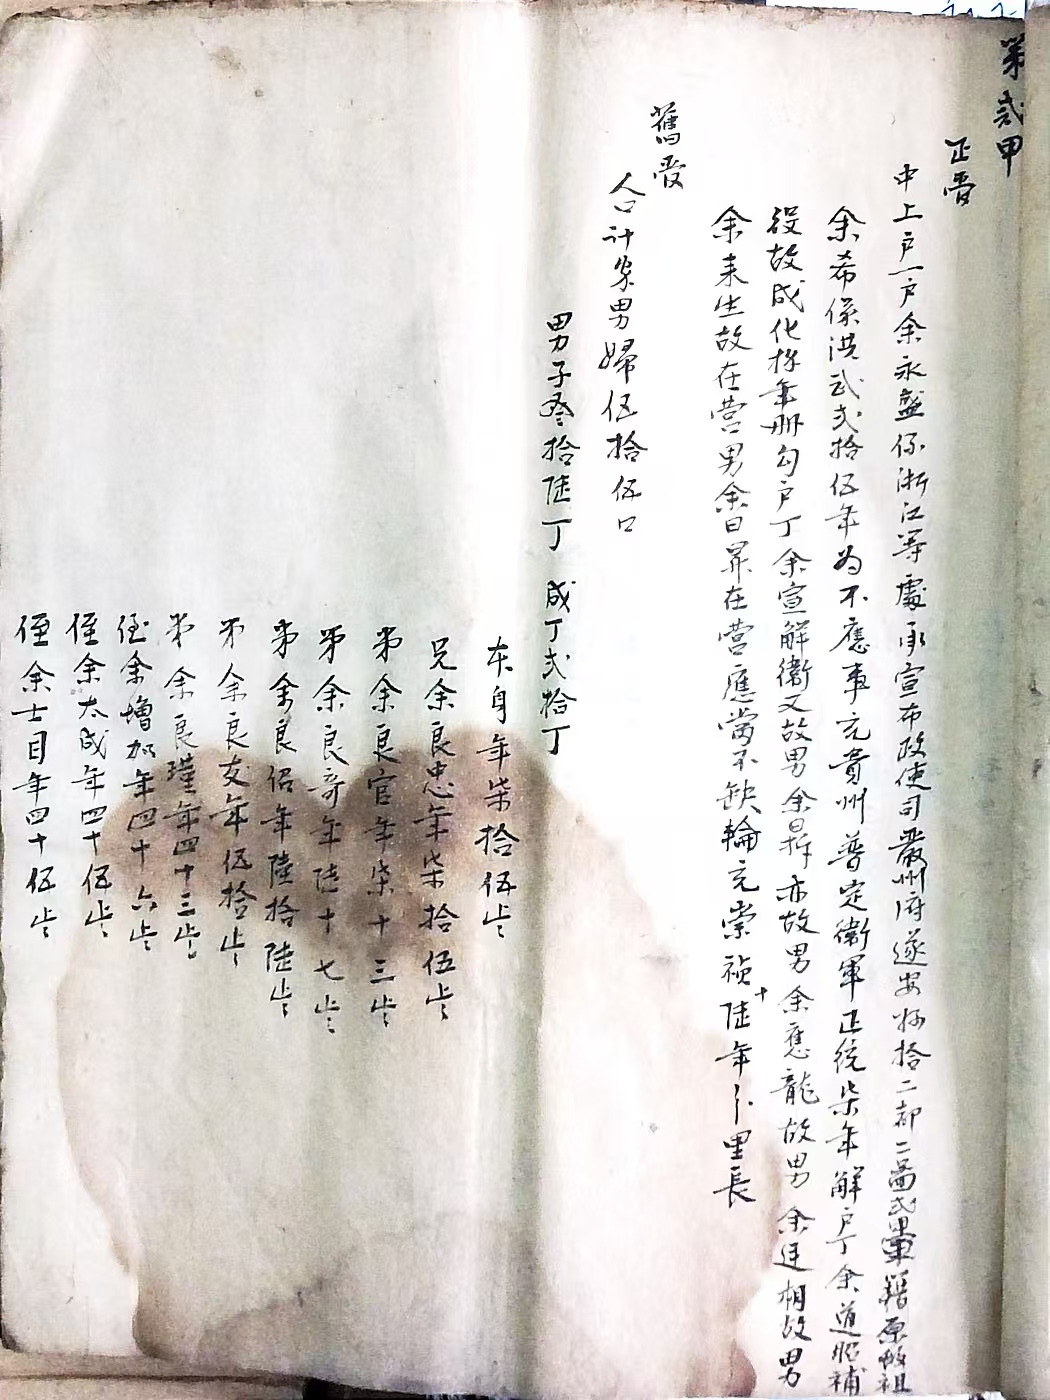 第貳甲
正管
中上戶一戶余永盛係浙江等處承宣布政使司嚴州府遂安縣拾二都二啚弍甲軍籍原故祖
余希係洪武弍拾伍年為不應事充貴州普定衛軍正統柒年解戶丁余道補
役故成化拾年册勾戶丁余宣解衛又故男余昇亦故男余應龍故男余廷相故男
余来生故在营男余日昇在营應當不缺輪充崇禎十陸年里長
舊管
人口計家男婦伍拾伍口
男子叁拾陸丁 成丁弍拾丁
本身年柒拾伍歲
兄余良忠年柒拾伍歲
弟余良官年柒十三歲
弟余良奇年陸十七歲
弟余良侶年陸拾陸歲
弟余良友年伍拾歲
弟余良瑾年四十三歲
侄余增加年四十六歲
侄余太成年四十伍歲
侄余士目年四十伍歲